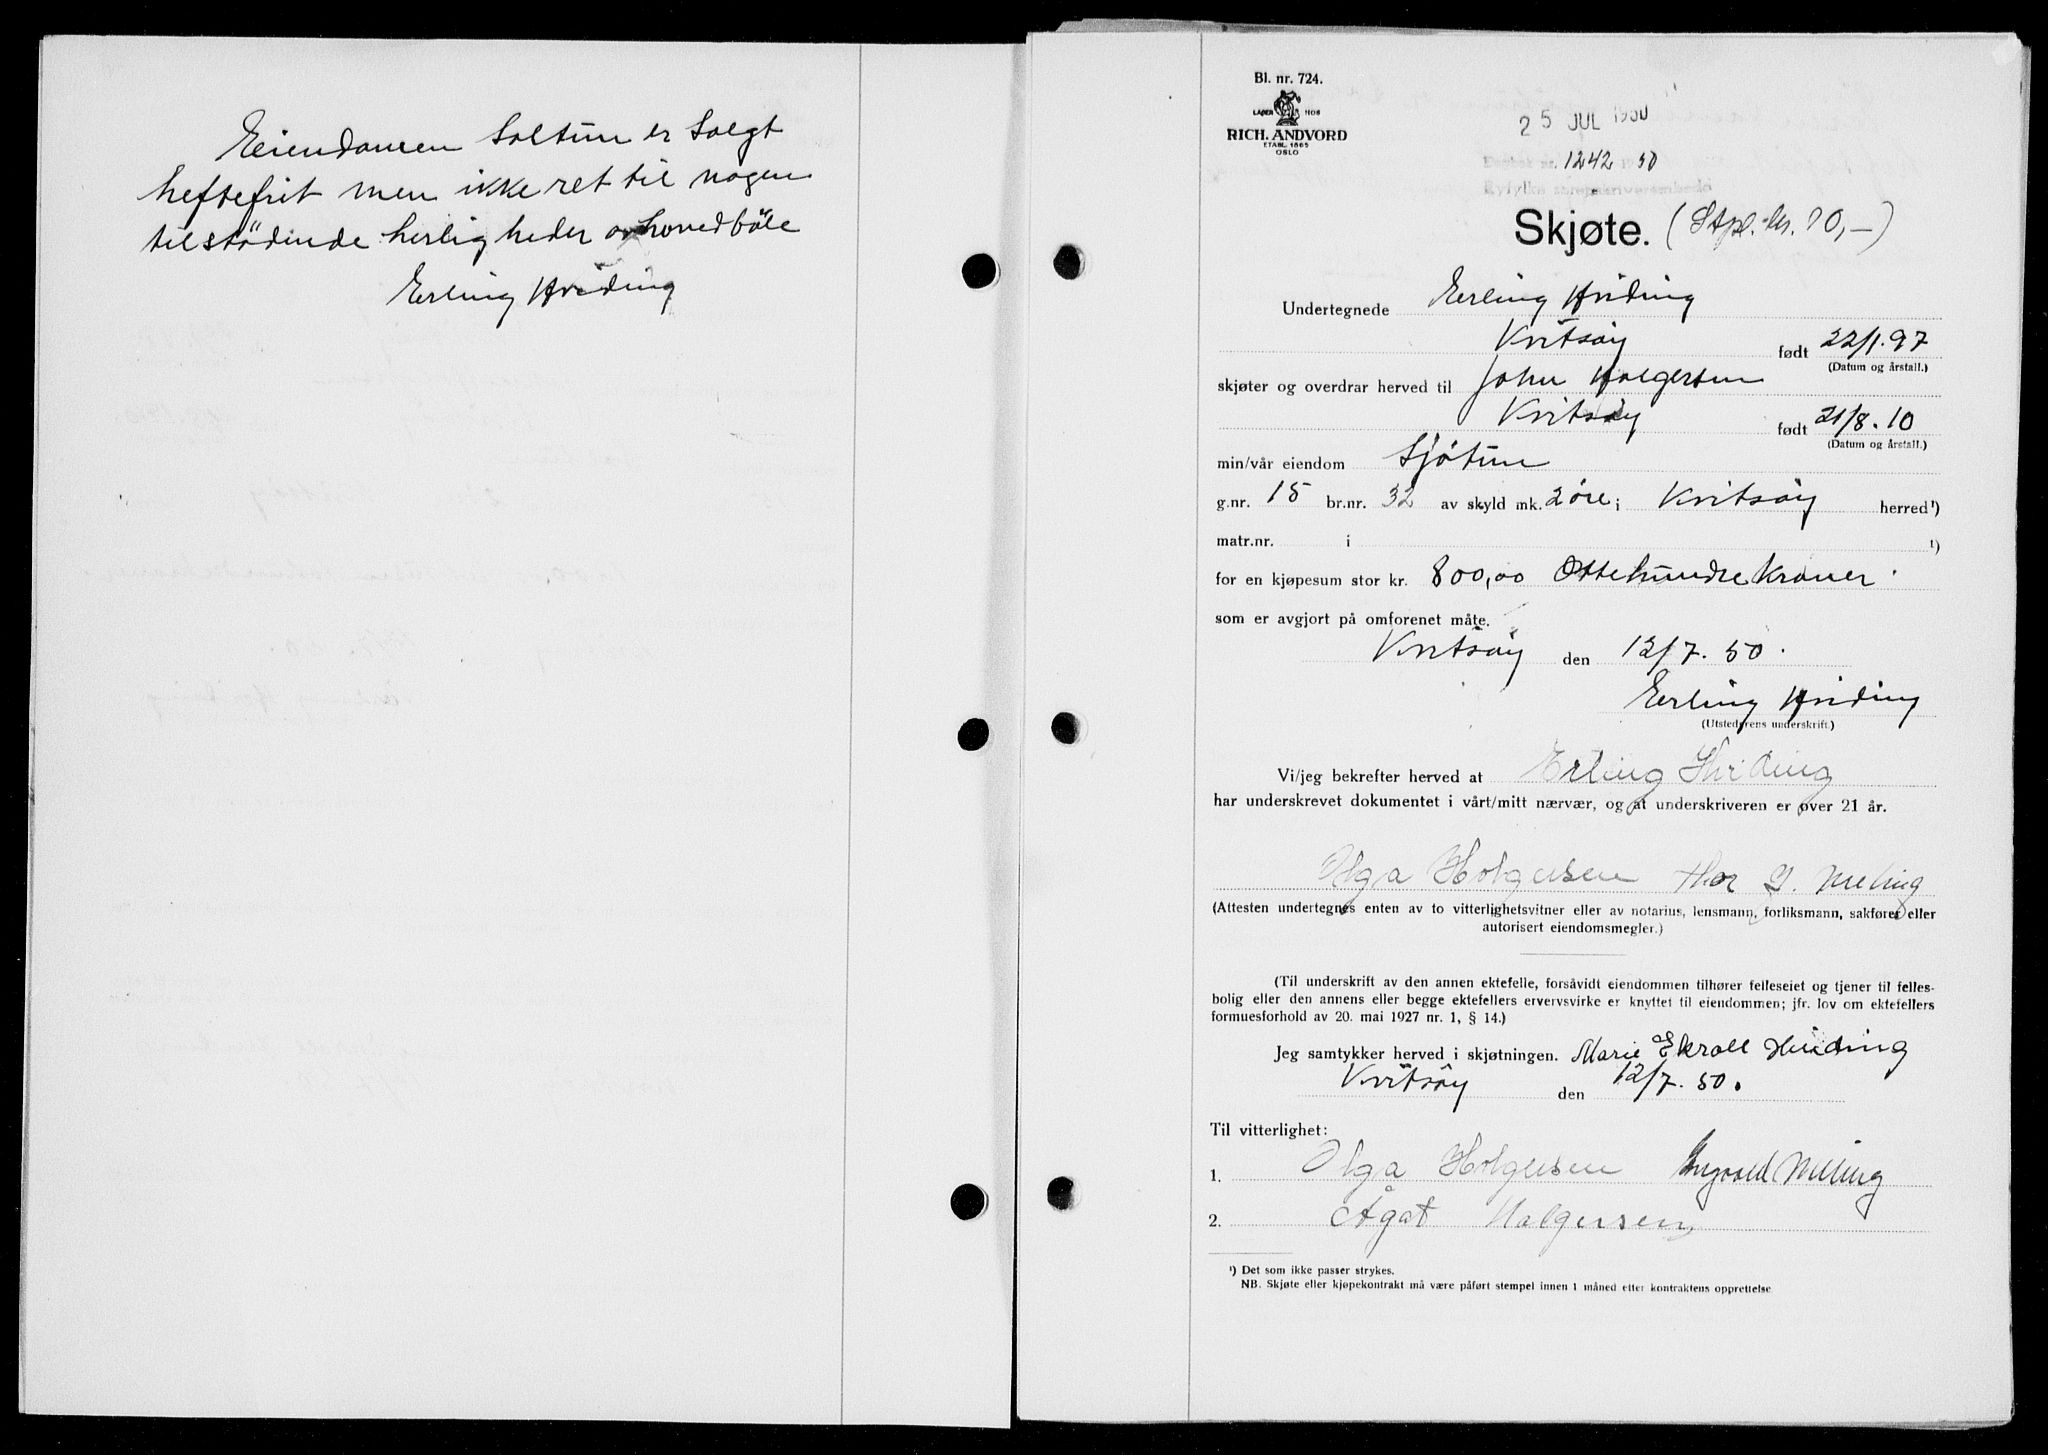 Eiendomen Soltun er Solgt
heftefrit men ikke ret til nogen
tilstødende herligheder av hovedbøle
Erling Hviding
Bl. nr. 724.
LAGER HOS
RICH. ANDVORD
ETABL. 1865
OSLO
25 JUL 1950
Dagbok nr. 1242 19 50
Ryfylke sorenskriverembede
Skjøte. (Stpl. kr. 10,-)
Undertegnede Erling Hviding
Kvitsøy født 22/1. 97
(Datum og årstall.)
skjøter og overdrar herved til John Holgersen
Kvitsøy født 21/8. 10
(Datum og årstall.)
min/vår eiendom Sjötun
g.nr. 15 br.nr. 32 av skyld mk. 2 øre i Kvitsøy herred ¹)
matr.nr. i ¹)
for en kjøpesum stor kr. 800,00 Ottehundre Kroner.
som er avgjort på omforenet måte.
Kvitsøy den 12/7. 50.
Erling Hviding
(Utstederens underskrift.)
Vi/jeg bekrefter herved at Erling Hviding
har underskrevet dokumentet i vårt/mitt nærvær, og at underskriveren er over 21 år.
Olga Holgersen Thor G. Meling
(Attesten undertegnes enten av to vitterlighetsvitner eller av notarius, lensmann, forliksmann, sakfører eller
autorisert eiendomsmegler.)
(Til underskrift av den annen ektefelle, forsåvidt eiendommen tilhører felleseiet og tjener til felles-
bolig eller den annens eller begge ektefellers ervervsvirke er knyttet til eiendommen; jfr. lov om ektefellers
formuesforhold av 20. mai 1927 nr. 1, § 14.)
Jeg samtykker herved i skjøtningen. Marie Ekroll Hviding
Kvitsøy den 12/7. 50.
Til vitterlighet:
1. Olga Holgersen Ingvald Meling
2. Ågot Holgersen
¹) Det som ikke passer strykes.
NB. Skjøte eller kjøpekontrakt må være påført stempel innen 1 måned etter kontraktens opprettelse